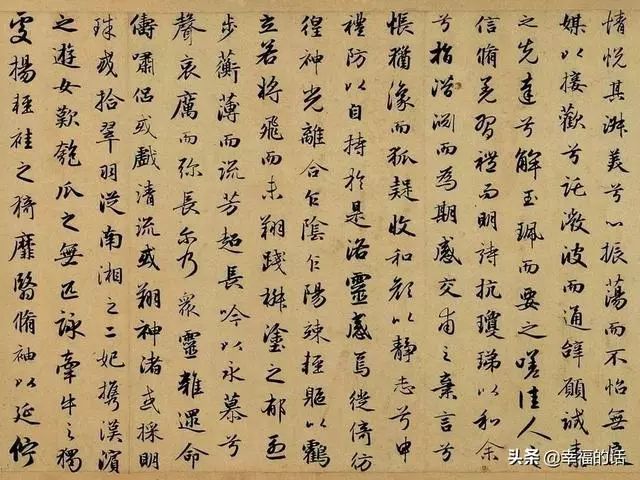 情悦其淑美兮心振荡而不怡無良
媒以接歡兮託微波而通辭願誠素
之先達兮解玉珮而要之嗟佳人之
信脩羌習禮而明詩抗瓊珶以和余
兮指潛淵而為期感交甫之棄言兮
悵猶豫而狐疑收和顏以静志兮申
禮防以自持於是洛靈感焉徙倚彷
徨神光離合乍陰乍陽竦輕軀以鶴
立若將飛而未翔踐椒塗之郁烈
步蘅薄而流芳超長吟以永慕兮
聲哀厲而彌長爾乃衆靈雜遝命
儔嘯侣或戲清流或翔神渚或採明
珠或拾翠羽從南湘之二妃攜漢濱
之遊女歎匏瓜之無匹詠牽牛之獨
處揚輕袿之猗靡翳脩袖以延佇
头条 @幸福的话